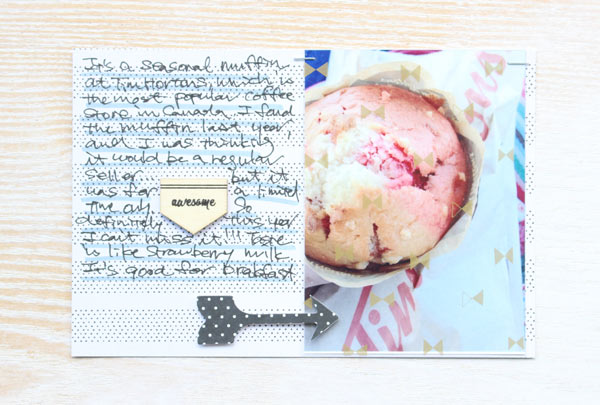 It's a seasonal muffin
at Tim Hortons, which is
the most popular coffee
store in Canada. I
the muffin last year,
and I was thinking
it would be a regular
seller. but it
was for a limited
time only. So
definitely this year
I can't miss it!!! Taste
is like strawberry milk.
It's good for breakfast.
awesome
Tim